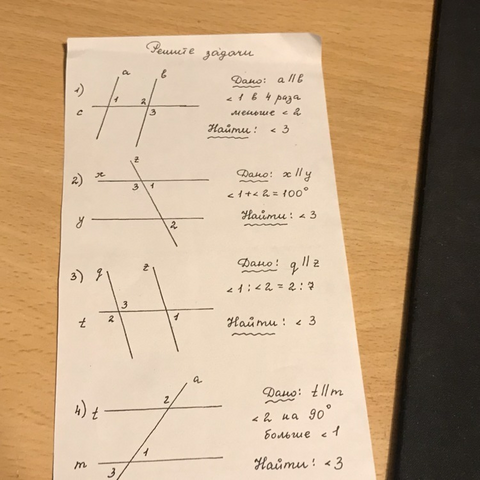 Решите задачи
1) a b c 1 2 3
Дано: a || b
< 1 в 4 раза
меньше < 2
Найти: < 3
2) x y z 3 1 2
Дано: x || y
< 1 + < 2 = 100°
Найти: < 3
3) q z t 2 3 1
Дано: q || z
< 1 : < 2 = 2 : 7
Найти: < 3
4) t a m 2 1 3
Дано: t || m
< 2 на 90°
больше < 1
Найти: < 3